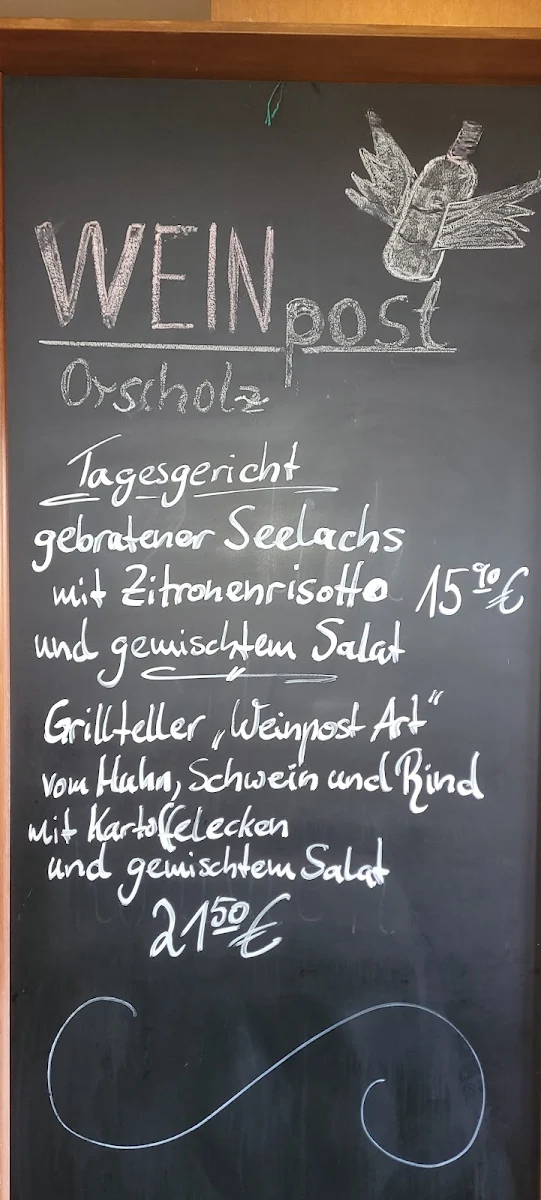 WEINpost
Orscholz
Tagesgericht
gebratener Seelachs
mit Zitronenrisotto 15⁹⁰€
und gemischtem Salat
Grillteller „Weinpost Art"
vom Huhn, Schwein und Rind
mit Kartoffelecken
und gemischtem Salat
21⁵⁰€